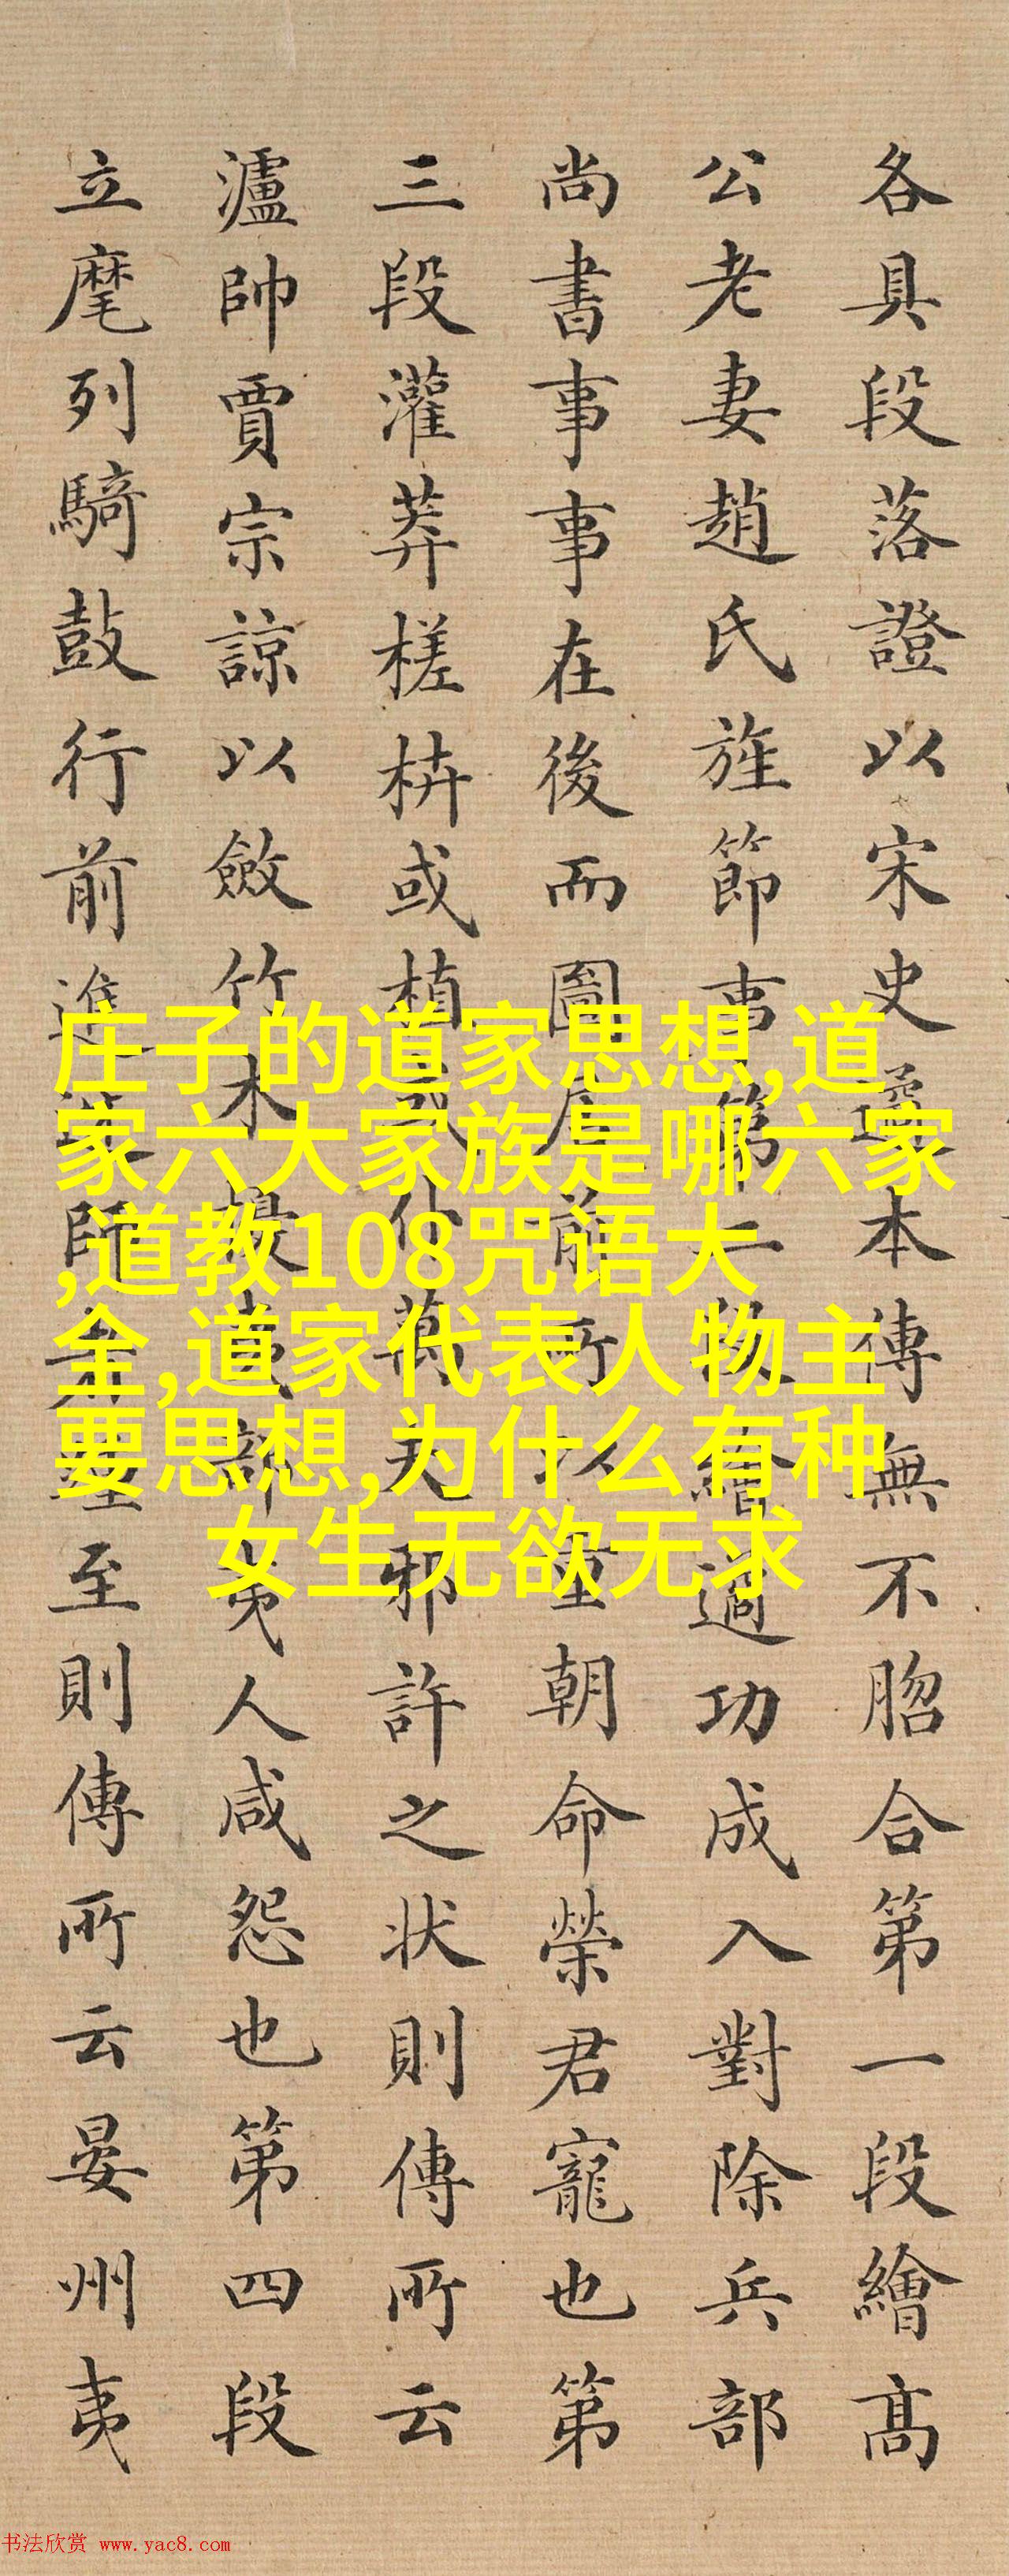 各具段落證以宋史遹本傳無不脗合第一段繪高
公老妻趙氏旌節事第二段繪遹功成入對除兵部
尚書事事在後而圖居前所以重朝命榮君寵也第
三段灌莽槎枿或植或仆萬夫邪許之状則傳所云
瀘帥賈宗諒以斂竹木擾夷部夷人咸怨也第四段
立麾列騎鼓行前進師至則傳所云晏州夷
庄子的道家思想,道
家六大家族是哪六家
,道教108咒语大
全,道家代表人物主
要思想,为什么有种
女生无欲无求
书法欣赏 www.yac8.com